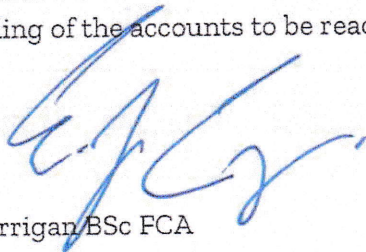 ning of the accounts to be read
rrigan BSc FCA